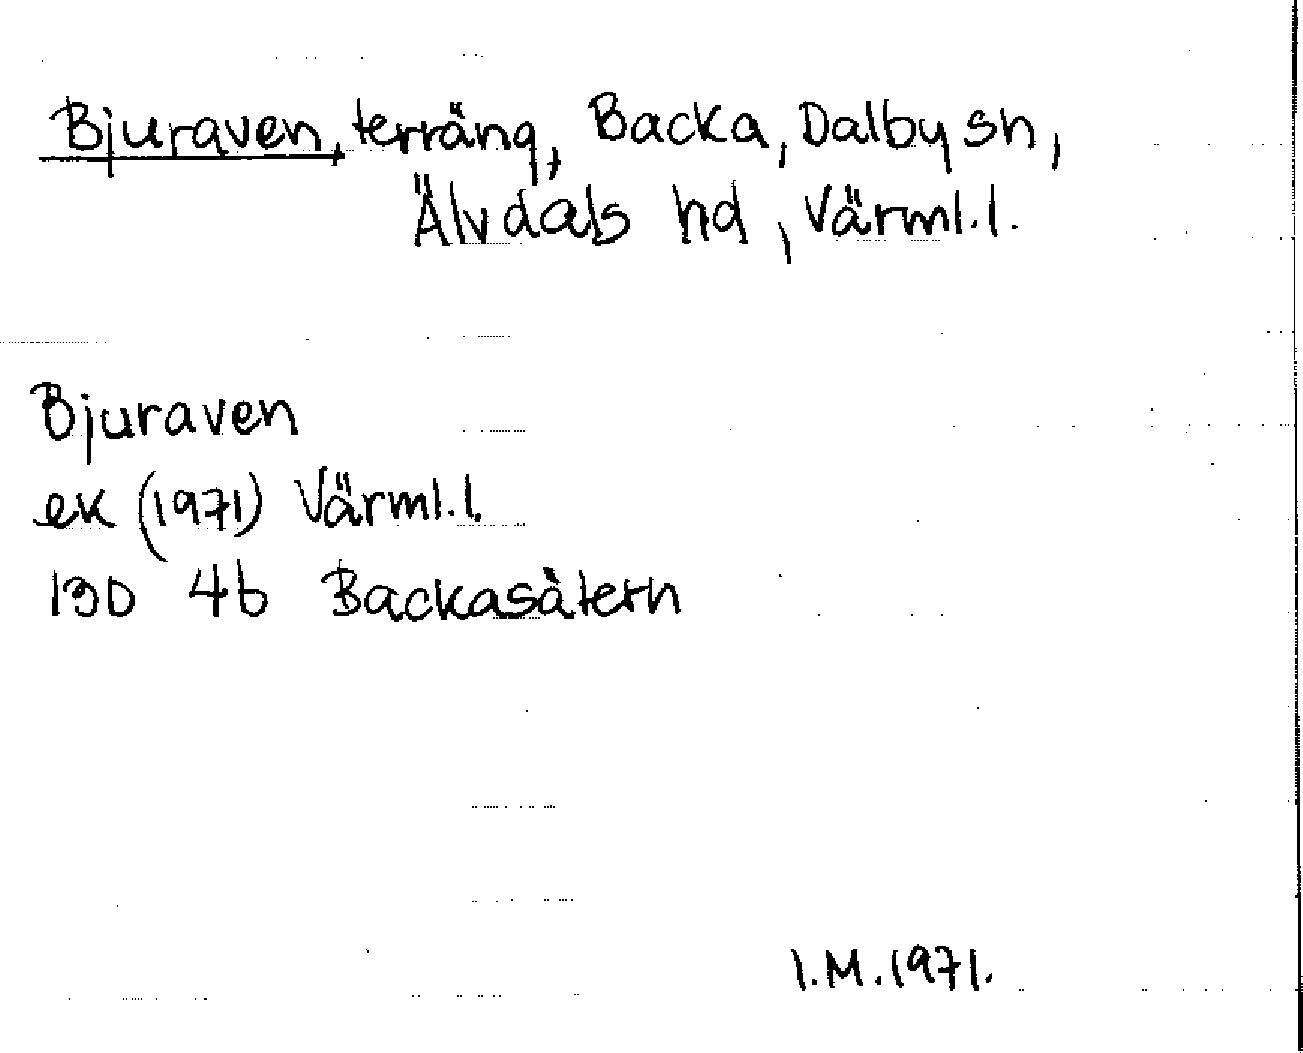 Bjuraven, terräng, Backa, Dalby sn,
Älvdals hd, Värml.l.
Bjuraven
ek (1971) Värml.l.
13D 4b Backasätern
I.M. 1971.